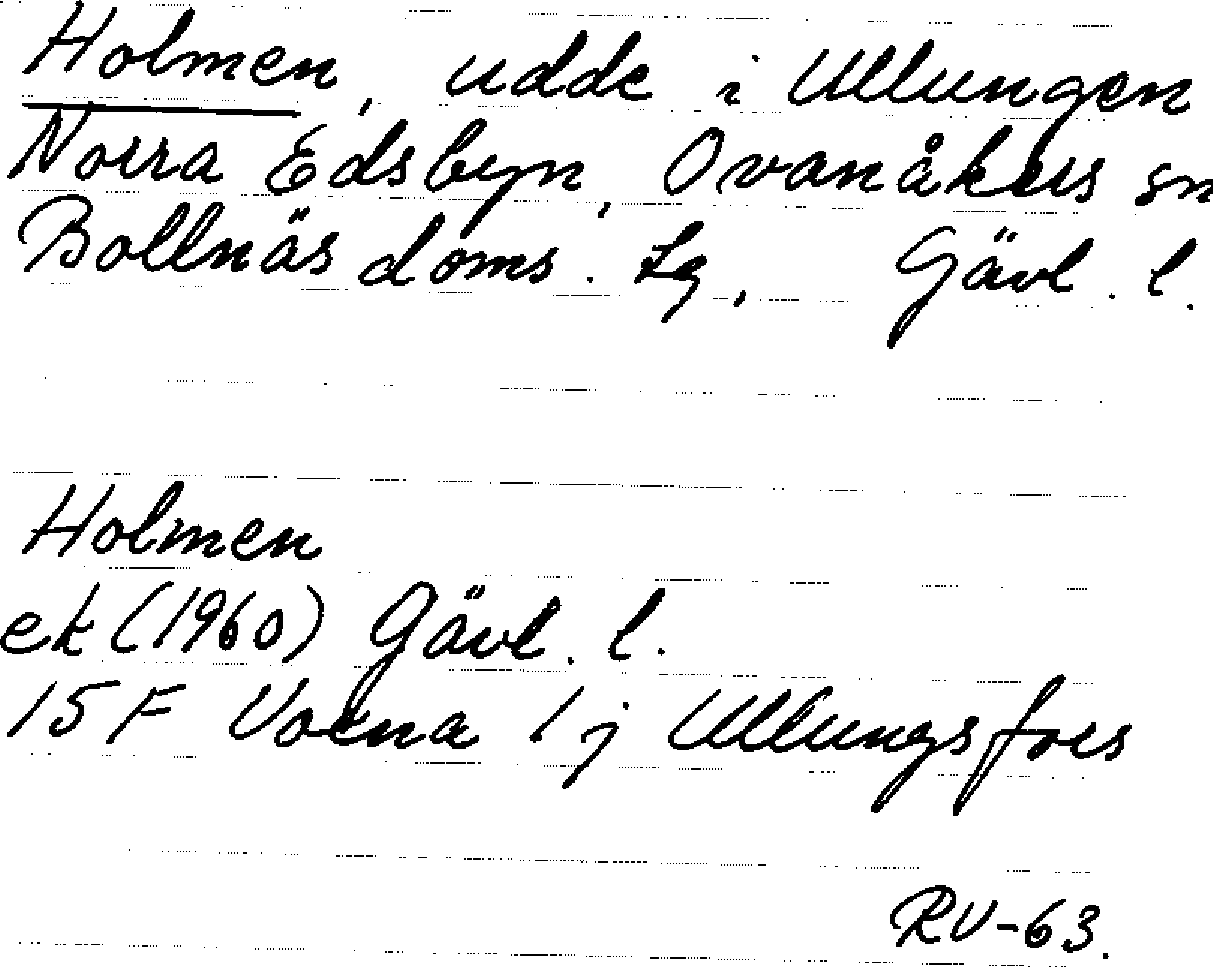 Holmen, udde i Ullungen
Norra Edsbyn, Ovanåkers sn
Bollnäs doms. lg, Gävl. l.
Holmen
ek (1960) Gävl. l.
15 F Voxna 1 j Ullungsfors
RV-63.